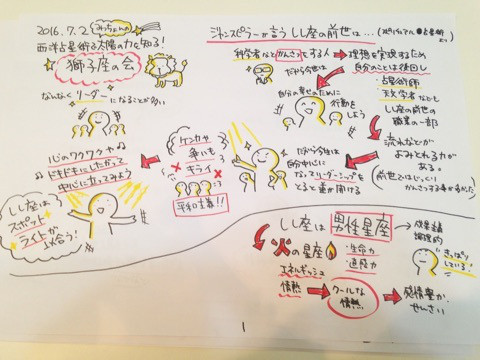 2016.7.2
西洋占星術で太陽の力を知る!
獅子座の会
なんなくリーダー
になることが多い
心のワクワクや
ドキドキにしたがって
中心に立ってみよう
しし座は
スポット
ライトが
似合う!
ケンカや
争いも
キライ
平和主義!!
ジャンスピラーが言うしし座の前世は…
科学者などかんさつをする人
理想を実現するため
自分のことは後回し
だから今世は
自分の幸せのために
行動を
しよう
・占星術師
天文学者なども
しし座の前世の
職業の一部
流れなどが
よみとれる力が
ある。
(前世ではじっくり
かんさつする事が多かった)
だから今世は
自分中心に
なってリーダーシップを
とると道が開ける
しし座は男性星座
成果主義
論理的
さっぱり
している!
火の星座
・生命力
・直感力
エネルギッシュ
情熱
クールな
情熱
感情豊か
せんさい
1